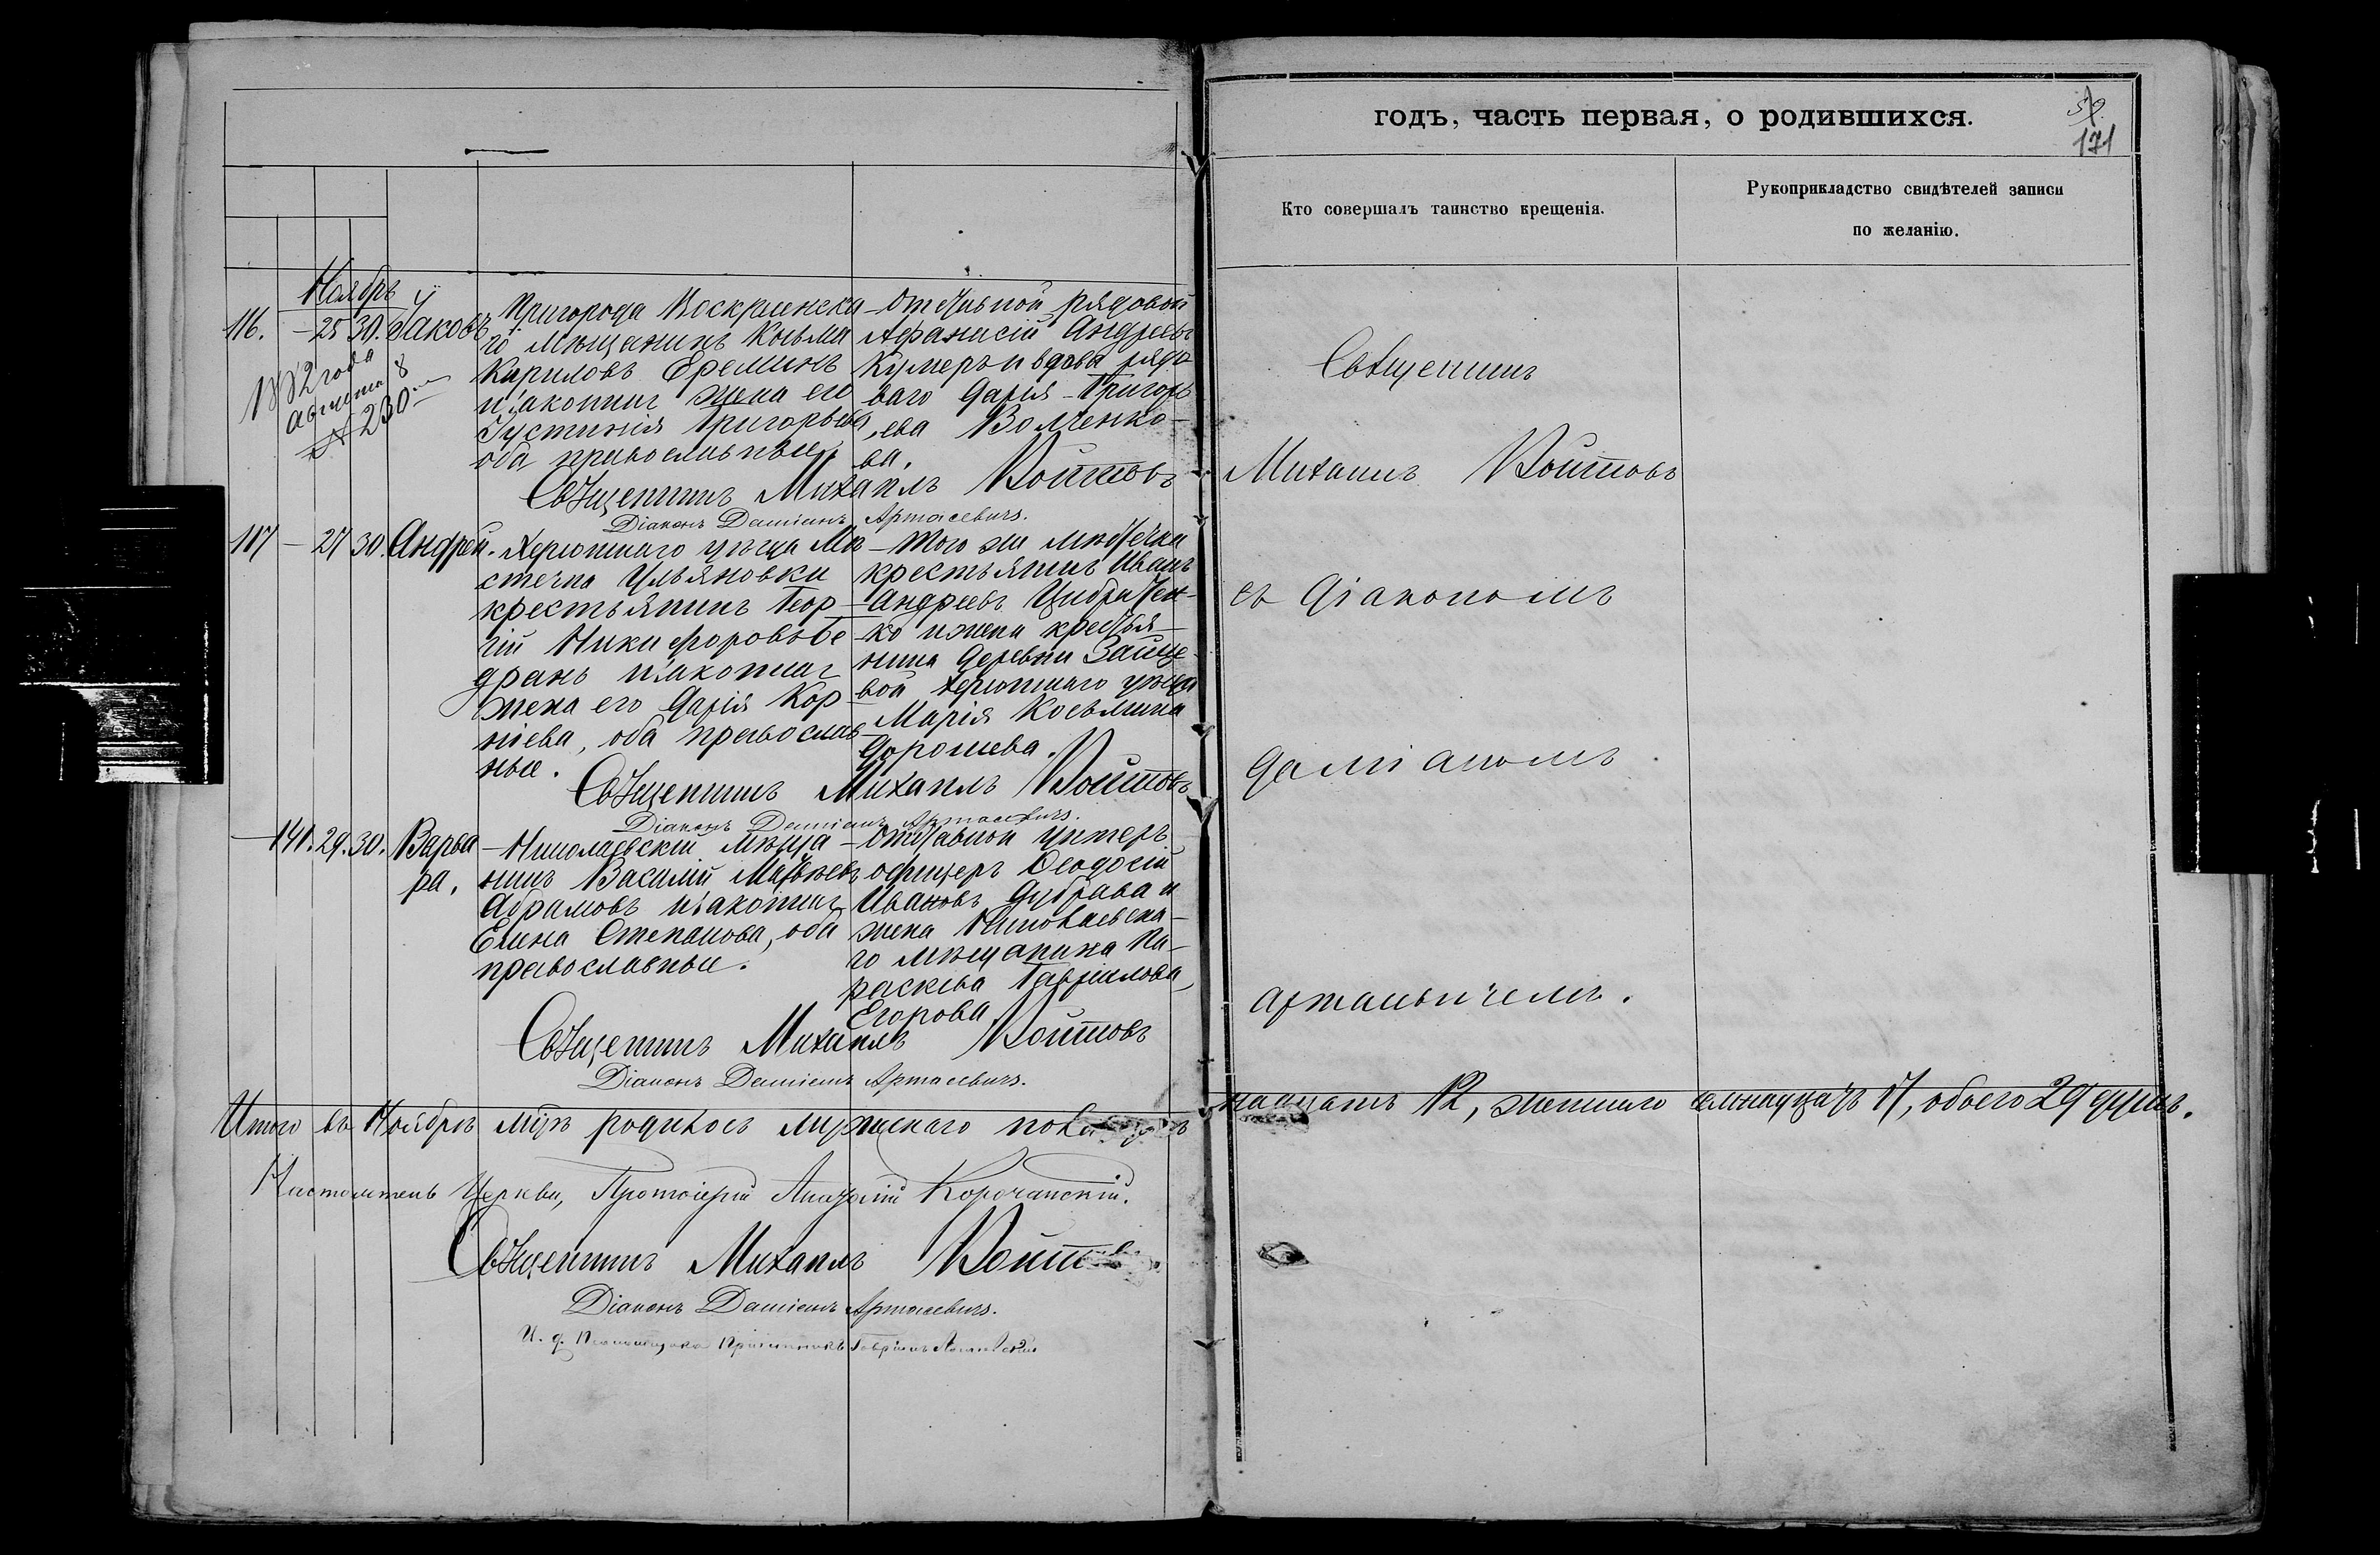 годъ, часть первая, о родившихся.
59.
171
Кто совершалъ таинство крещенія.
Рукоприкладство свидѣтелей записи
по желанію.
Ноябрь
116. – 25 30. Іаковъ
1882 года
августа 8
№ 230
Пригорода Воскресенска-
го мѣщанинъ Козьма
Кириловъ Ереминъ
и законная жена его
Іустинія Григорьева,
оба православные.
Отставной рядовой
Афанасій Андреевъ
Кушеръ и вдова рядо-
ваго Дарія Григорь-
ева Волченко-
ва.
Священникъ Михаилъ Войтовъ
Діаконъ Даміанъ Артасевичъ.
117 – 27 30. Андрей.
Херсонскаго уѣзда Мѣ-
стечка Ульяновки
крестьянинъ Геор-
гій Никифоровъ Бе-
дранъ и законная
жена его Дарія Кор-
ніева, оба православ-
ные.
– того же мѣстечка
крестьянинъ Иванъ
Андреевъ Цибульчен-
ко и жена крестья-
нина деревни Зайце-
вой Херсонскаго уѣзда
Марія Косьмина
Дорошева.
Священникъ Михаилъ Войтовъ
Діаконъ Даміанъ Артасевичъ.
– 141. 29. 30. Варва
ра.
– Николаевскій мѣща-
нинъ Василій Матвеевъ
Абрамовъ и законная
Елена Степанова, оба
православные.
– Отставной унтеръ
офицеръ Ѳеодосій
Ивановъ Дубрава и
жена Николаевска-
го мѣщанина Па-
раскева Гавріилова
Егорова
Священникъ Михаилъ Войтовъ
Діаконъ Даміанъ Артасевичъ.
Священникъ
Михаилъ Войтовъ
съ Діакономъ
Даміаномъ
Артасевичемъ.
Итого въ Ноябрѣ мцѣ родилось мужескаго пола
надцать 12, женскаго семнадцать 17, обоего 29 душъ.
Настоятель Церкви, Протоіерей Анатолій Корочанскій.
Священникъ Михаилъ Войтовъ
Діаконъ Даміанъ Артасевичъ.
И. д. Псаломщика Гавріилъ